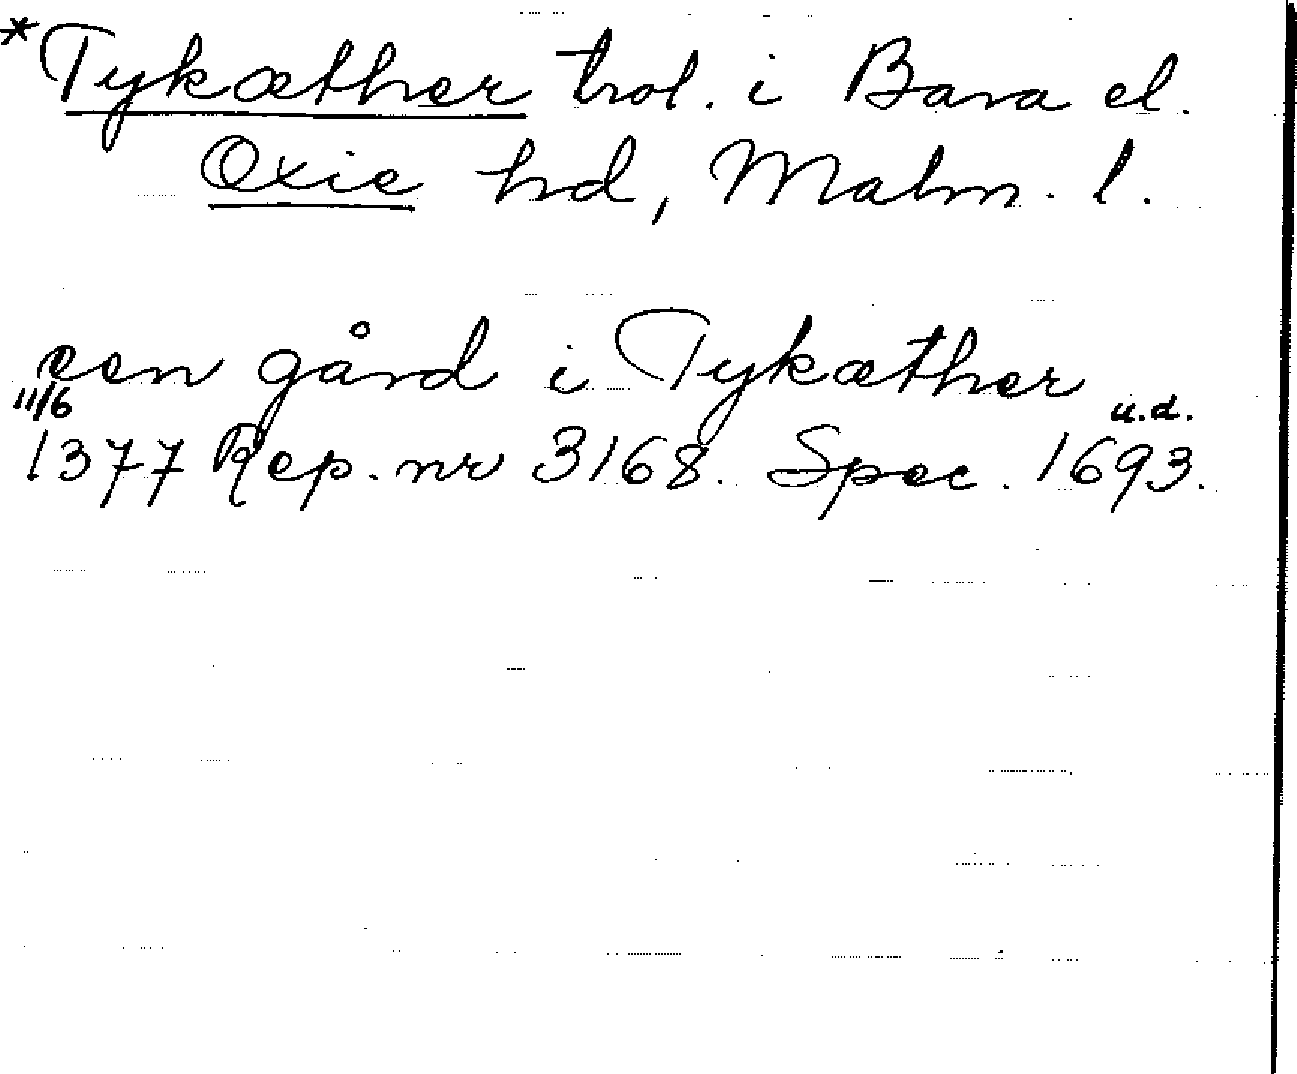 *Tykæther trol. i Bara el.
Oxie hd, Malm. l.
een gård i Tykæther
11/6 u.d.
1377 Rep. nr 3168. Spec. 1693.